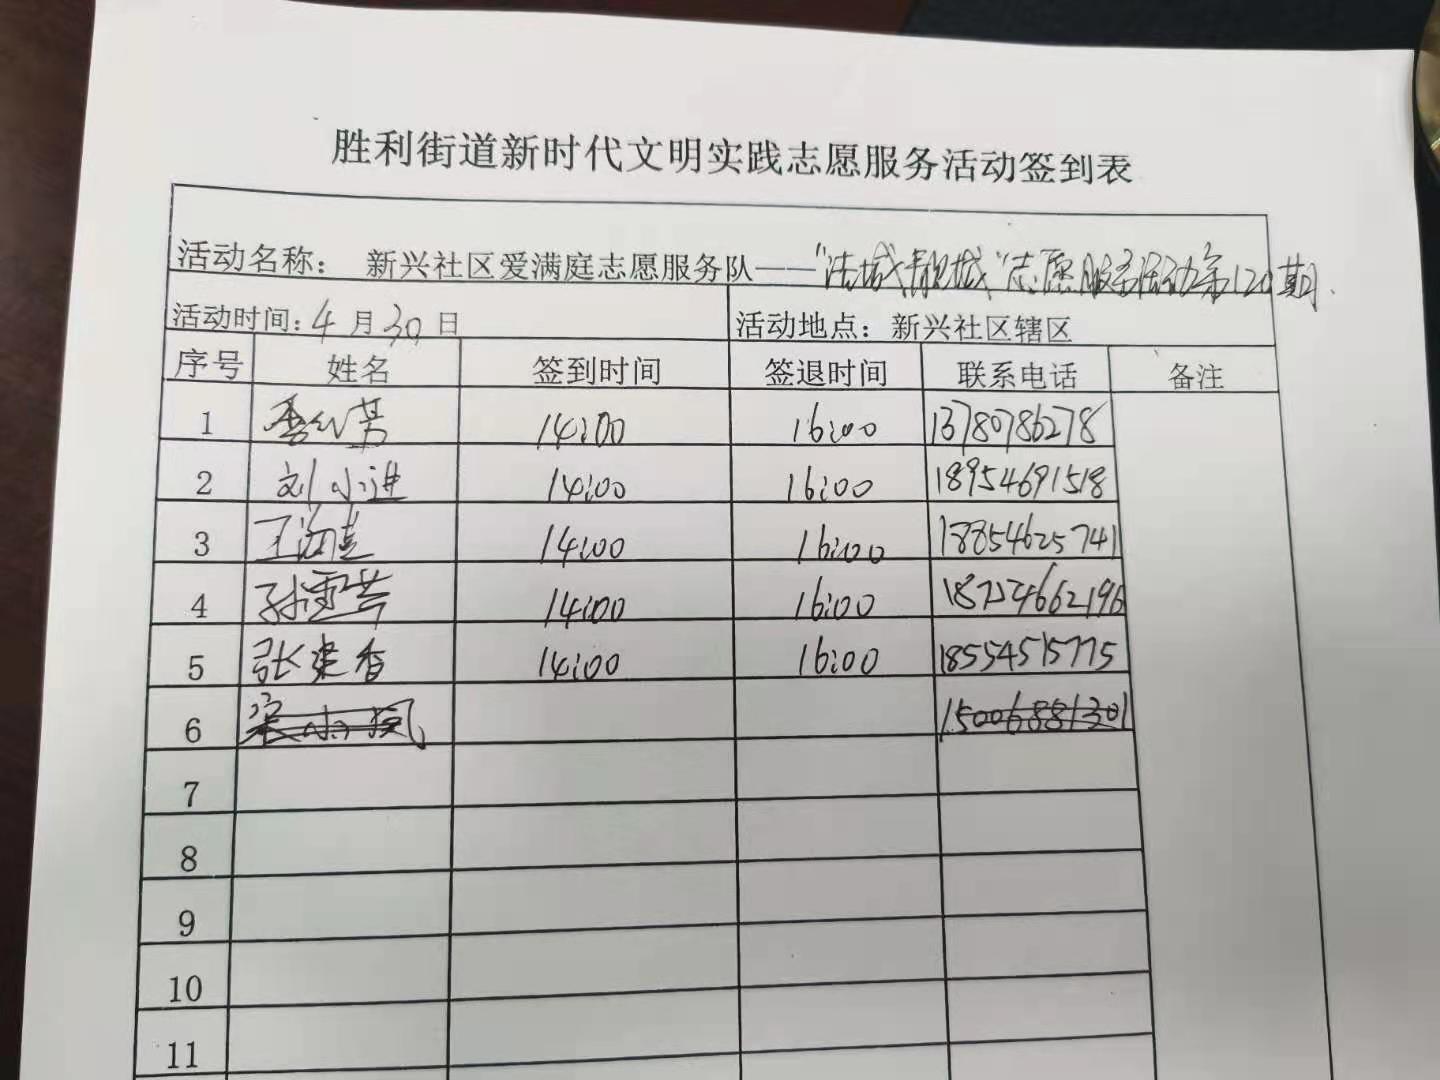 胜利街道新时代文明实践志愿服务活动签到表
活动名称： 新兴社区爱满庭志愿服务队——“洁城靓城”志愿服务活动第120期.
活动时间: 4 月 30 日 活动地点：新兴社区辖区
序号 姓名 签到时间 签退时间 联系电话 备注
1 14:00 16:00 13780786278
2 刘小进 14:00 16:00 18954691518
3 14:00 16:00 18854625741
4 14:00 16:00
5 张建香 14:00 16:00 18554515775
6 15006881301
7
8
9
10
11